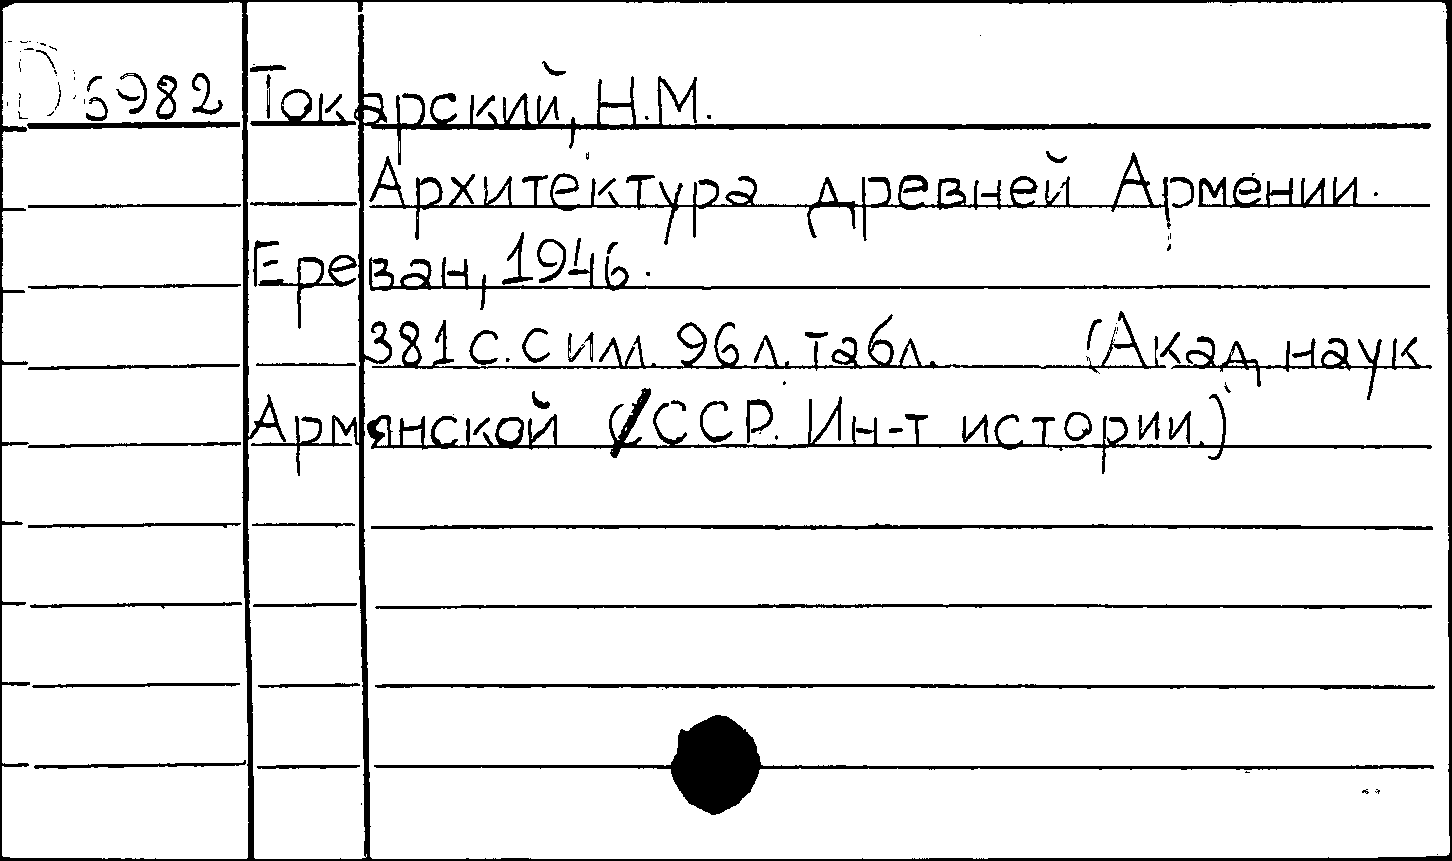 D 5982 Токарский, Н.М.
Архитектура древней Армении.
Ереван, 1946.
381 с. с илл. 96 л. табл. (Акад. наук
Армянской ССР. Ин-т истории.)